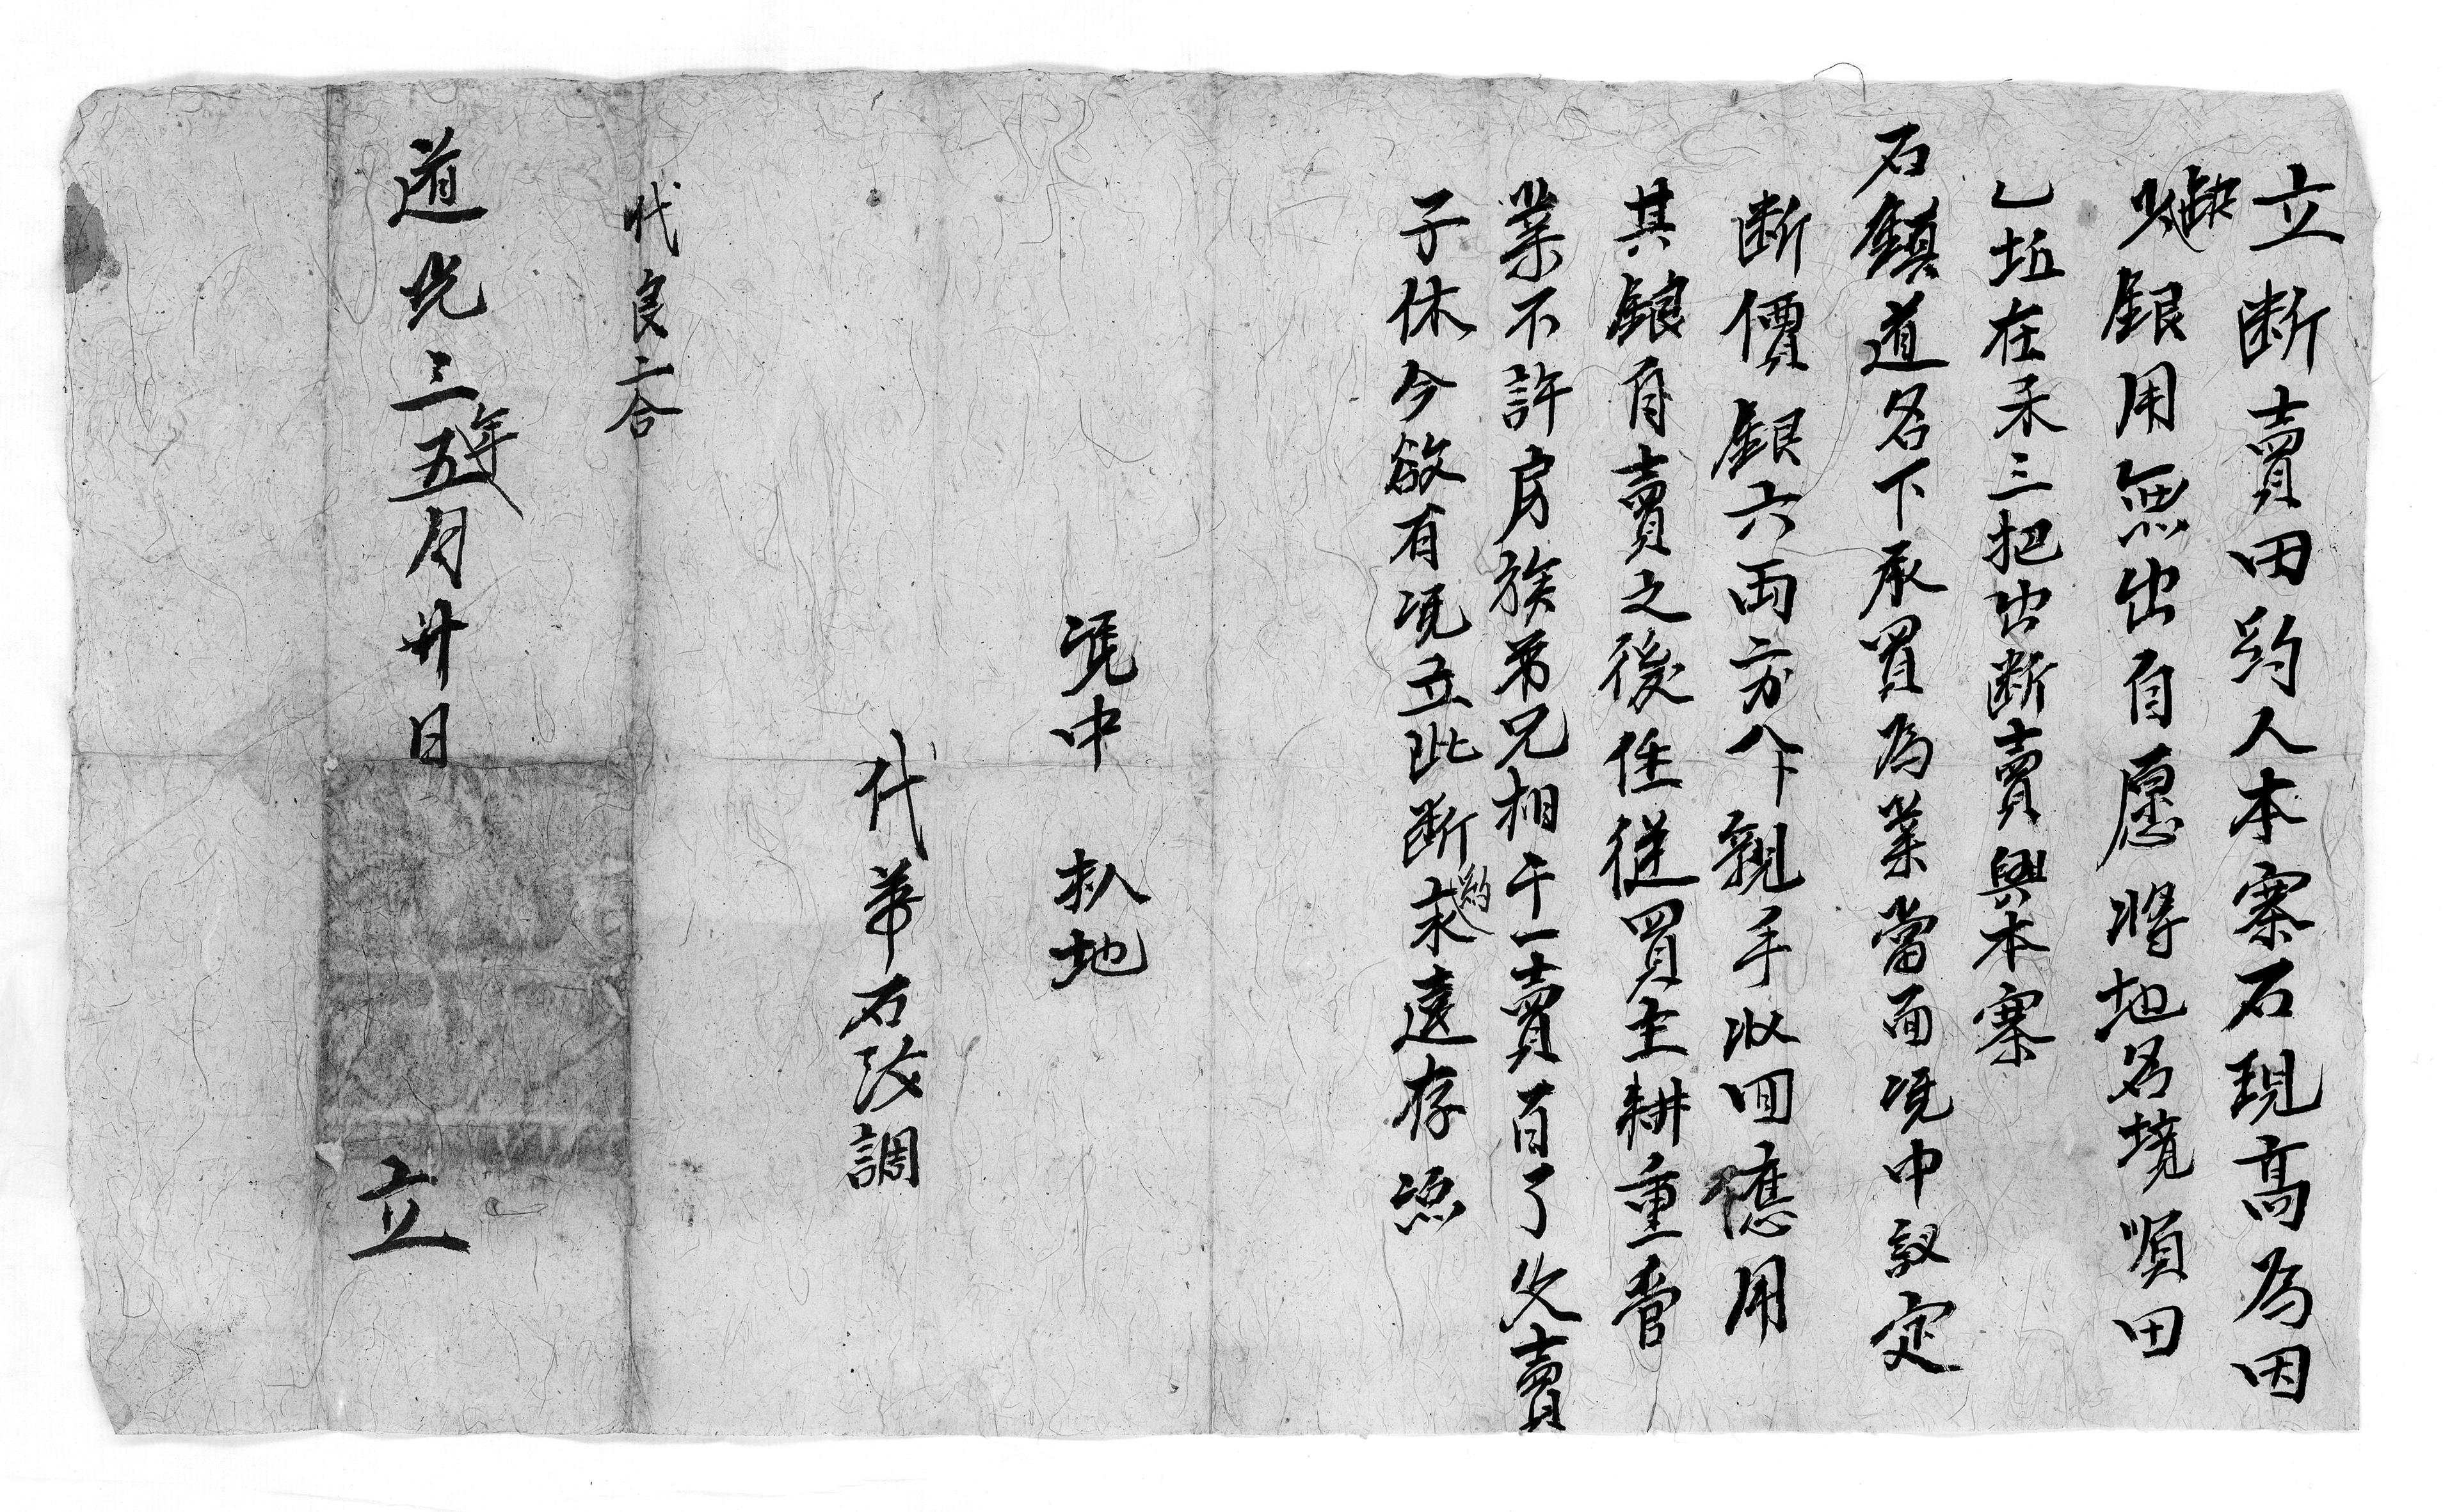 立断賣田約人本寨石現髙為因
缺少銀用無出自愿將地名境順田
乙坵在禾三把出断賣與本寨
石鎮道名下承買為業當面凴中議定
断價銀六両二分八卜親手収回應用
其銀自賣之後任從買主耕重管
業不許房族弟兄相干一賣百了父賣
子休今欲有凴立此断約永遠存照
凴中 扒地
代筆石调調
代良二合
道光三年五月廿日 立